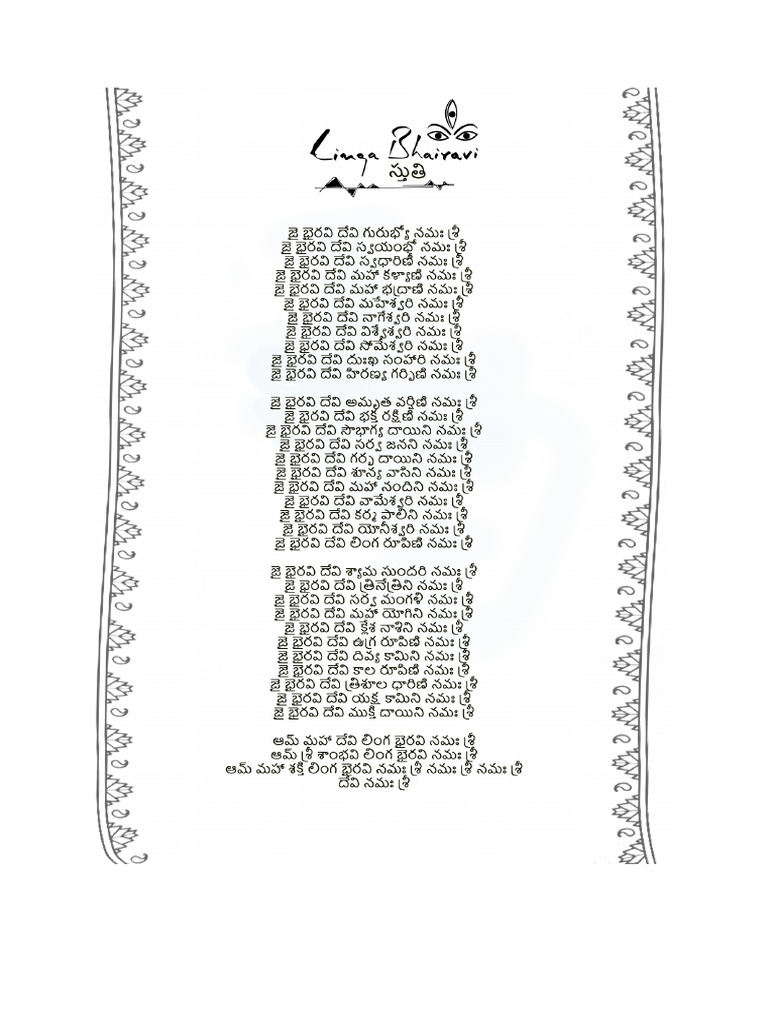 Linga Bhairavi
స్తుతి
జై భైరవి దేవి గురుభ్యో నమః శ్రీ
జై భైరవి దేవి స్వయంభో నమః శ్రీ
జై భైరవి దేవి స్వధారిణి నమః శ్రీ
జై భైరవి దేవి మహా కళ్యాణి నమః శ్రీ
జై భైరవి దేవి మహా భద్రాణి నమః శ్రీ
జై భైరవి దేవి మహేశ్వరి నమః శ్రీ
జై భైరవి దేవి నాగేశ్వరి నమః శ్రీ
జై భైరవి దేవి విశ్వేశ్వరి నమః శ్రీ
జై భైరవి దేవి సోమేశ్వరి నమః శ్రీ
జై భైరవి దేవి దుఃఖ సంహారి నమః శ్రీ
జై భైరవి దేవి హిరణ్య గర్భిణి నమః శ్రీ
జై భైరవి దేవి అమృత వర్షిణి నమః శ్రీ
జై భైరవి దేవి భక్త రక్షిణి నమః శ్రీ
జై భైరవి దేవి సౌభాగ్య దాయిని నమః శ్రీ
జై భైరవి దేవి సర్వ జనని నమః శ్రీ
జై భైరవి దేవి గర్భ దాయిని నమః శ్రీ
జై భైరవి దేవి శూన్య వాసిని నమః శ్రీ
జై భైరవి దేవి మహా నందిని నమః శ్రీ
జై భైరవి దేవి వామేశ్వరి నమః శ్రీ
జై భైరవి దేవి కర్మ పాలిని నమః శ్రీ
జై భైరవి దేవి యోనీశ్వరి నమః శ్రీ
జై భైరవి దేవి లింగ రూపిణి నమః శ్రీ
జై భైరవి దేవి శ్యామ సుందరి నమః శ్రీ
జై భైరవి దేవి త్రినేత్రిని నమః శ్రీ
జై భైరవి దేవి సర్వ మంగళి నమః శ్రీ
జై భైరవి దేవి మహా యోగిని నమః శ్రీ
జై భైరవి దేవి క్లేశ నాశిని నమః శ్రీ
జై భైరవి దేవి ఉగ్ర రూపిణి నమః శ్రీ
జై భైరవి దేవి దివ్య కామిని నమః శ్రీ
జై భైరవి దేవి కాల రూపిణి నమః శ్రీ
జై భైరవి దేవి త్రిశూల ధారిణి నమః శ్రీ
జై భైరవి దేవి యక్ష కామిని నమః శ్రీ
జై భైరవి దేవి ముక్తి దాయిని నమః శ్రీ
ఆమ్ మహా దేవి లింగ భైరవి నమః శ్రీ
ఆమ్ శ్రీ శాంభవి లింగ భైరవి నమః శ్రీ
ఆమ్ మహా శక్తి లింగ భైరవి నమః శ్రీ నమః శ్రీ నమః శ్రీ
దేవి నమః శ్రీ